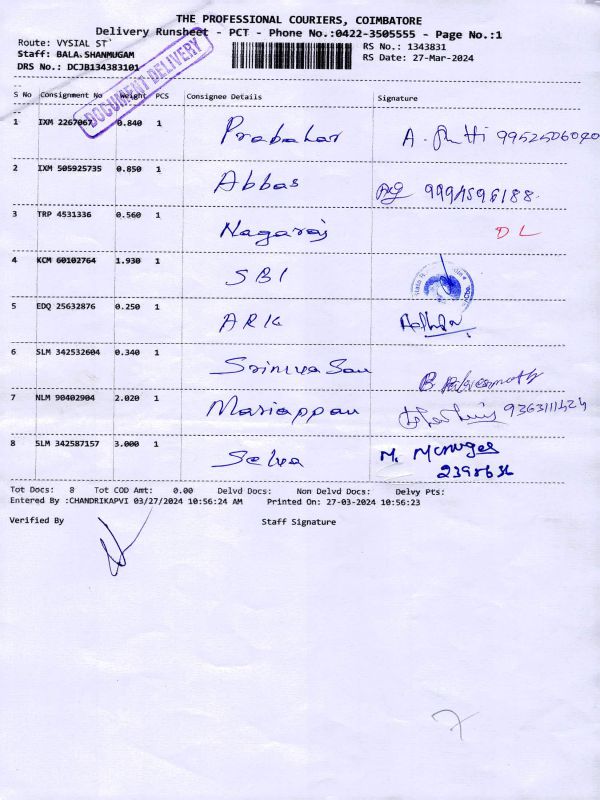 THE PROFESSIONAL COURIERS, COIMBATORE
Delivery Runsheet - PCT - Phone No.:0422-3505555 - Page No.:1
Route: VYSIAL ST`
RS No.: 1343831
Staff: BALA.SHANMUGAM
RS Date: 27-Mar-2024
DRS No.: DCJB134383101
DOCUMENT DELIVERY
S No Consignment No Weight PCS Consignee Details Signature
1 IXM 2267067 0.840 1 Prabahar A. 9952506040
2 IXM 505925735 0.850 1 Abbas
3 TRP 4531336 0.560 1 Nagaraj DL
4 KCM 60102764 1.930 1 SBI
5 EDQ 25632876 0.250 1 ARK
6 SLM 342532604 0.340 1 Srinivasan B.
7 NLM 90402904 2.020 1 Mariappan 9363111424
8 SLM 342587157 3.000 1 Selva M. Murugas
2398636
Tot Docs: 8 Tot COD Amt: 0.00 Delvd Docs: Non Delvd Docs: Delvy Pts:
Entered By :CHANDRIKAPVI 03/27/2024 10:56:24 AM Printed On: 27-03-2024 10:56:23
Verified By Staff Signature
7